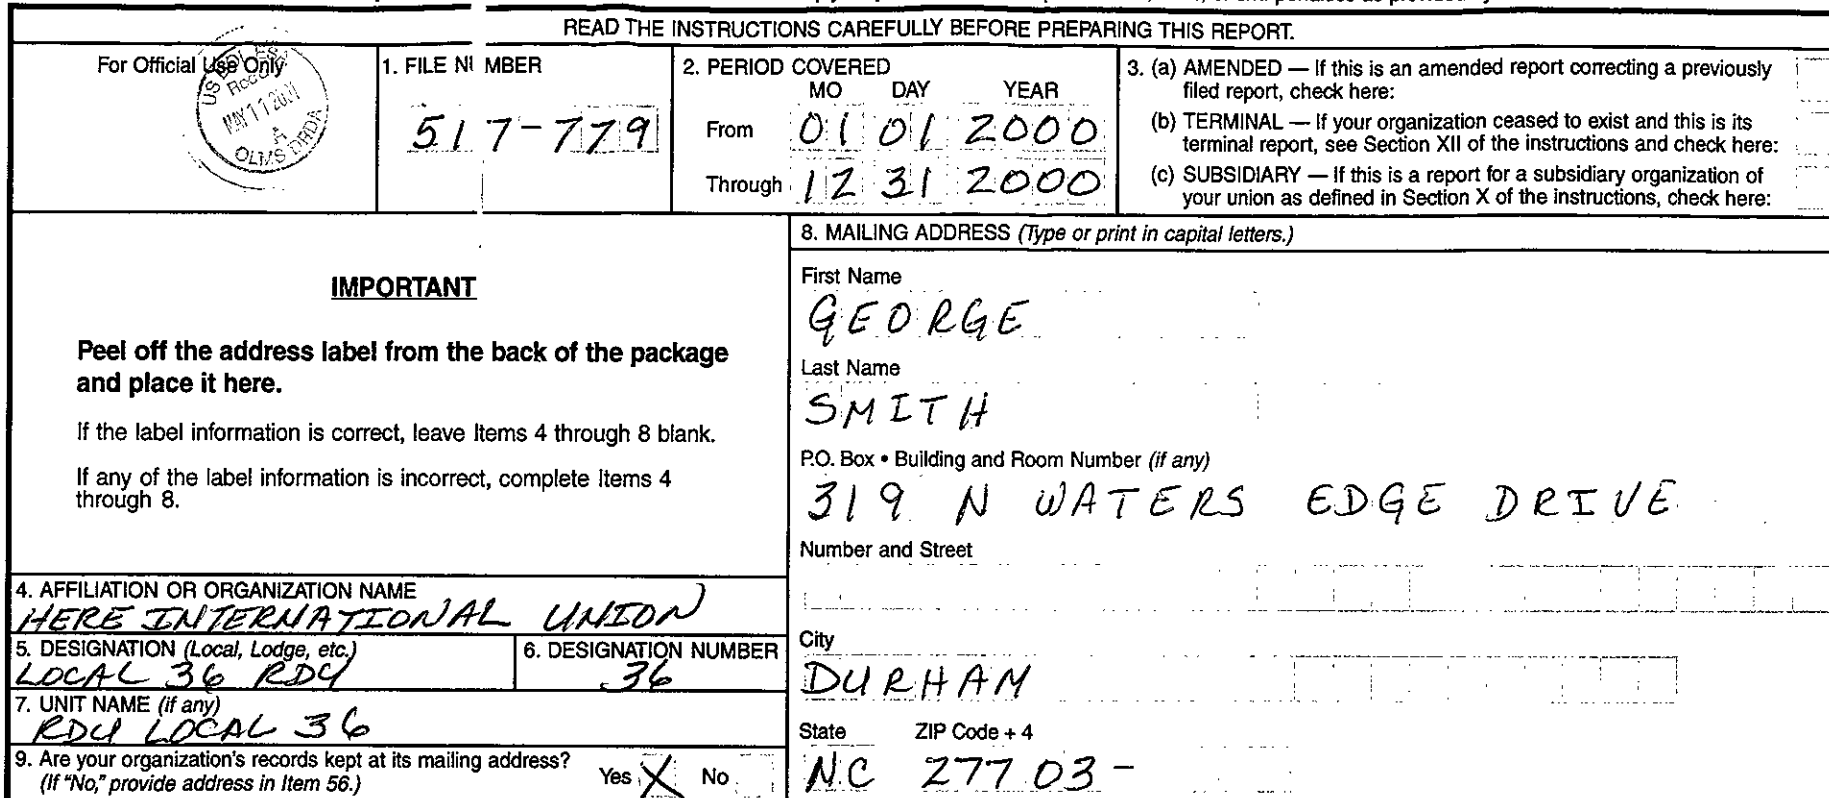 READ THE INSTRUCTIONS CAREFULLY BEFORE PREPARING THIS REPORT.
For Official Use Only
MAY 11 2001
OLMS DRDA
1. FILE NUMBER
517-779
2. PERIOD COVERED
MO DAY YEAR
From 01 01 2000
Through 12 31 2000
3. (a) AMENDED — If this is an amended report correcting a previously
filed report, check here:
(b) TERMINAL — If your organization ceased to exist and this is its
terminal report, see Section XII of the instructions and check here:
(c) SUBSIDIARY — If this is a report for a subsidiary organization of
your union as defined in Section X of the instructions, check here:
IMPORTANT
Peel off the address label from the back of the package
and place it here.
If the label information is correct, leave Items 4 through 8 blank.
If any of the label information is incorrect, complete Items 4
through 8.
4. AFFILIATION OR ORGANIZATION NAME
HERE INTERNATIONAL UNION
5. DESIGNATION (Local, Lodge, etc.)
LOCAL 36 RDU
6. DESIGNATION NUMBER
36
7. UNIT NAME (if any)
RDU LOCAL 36
9. Are your organization's records kept at its mailing address?
(If "No," provide address in Item 56.)
Yes X No
8. MAILING ADDRESS (Type or print in capital letters.)
First Name
GEORGE
Last Name
SMITH
P.O. Box • Building and Room Number (if any)
319 N WATERS EDGE DRIVE
Number and Street
City
DURHAM
State ZIP Code + 4
NC 27703-